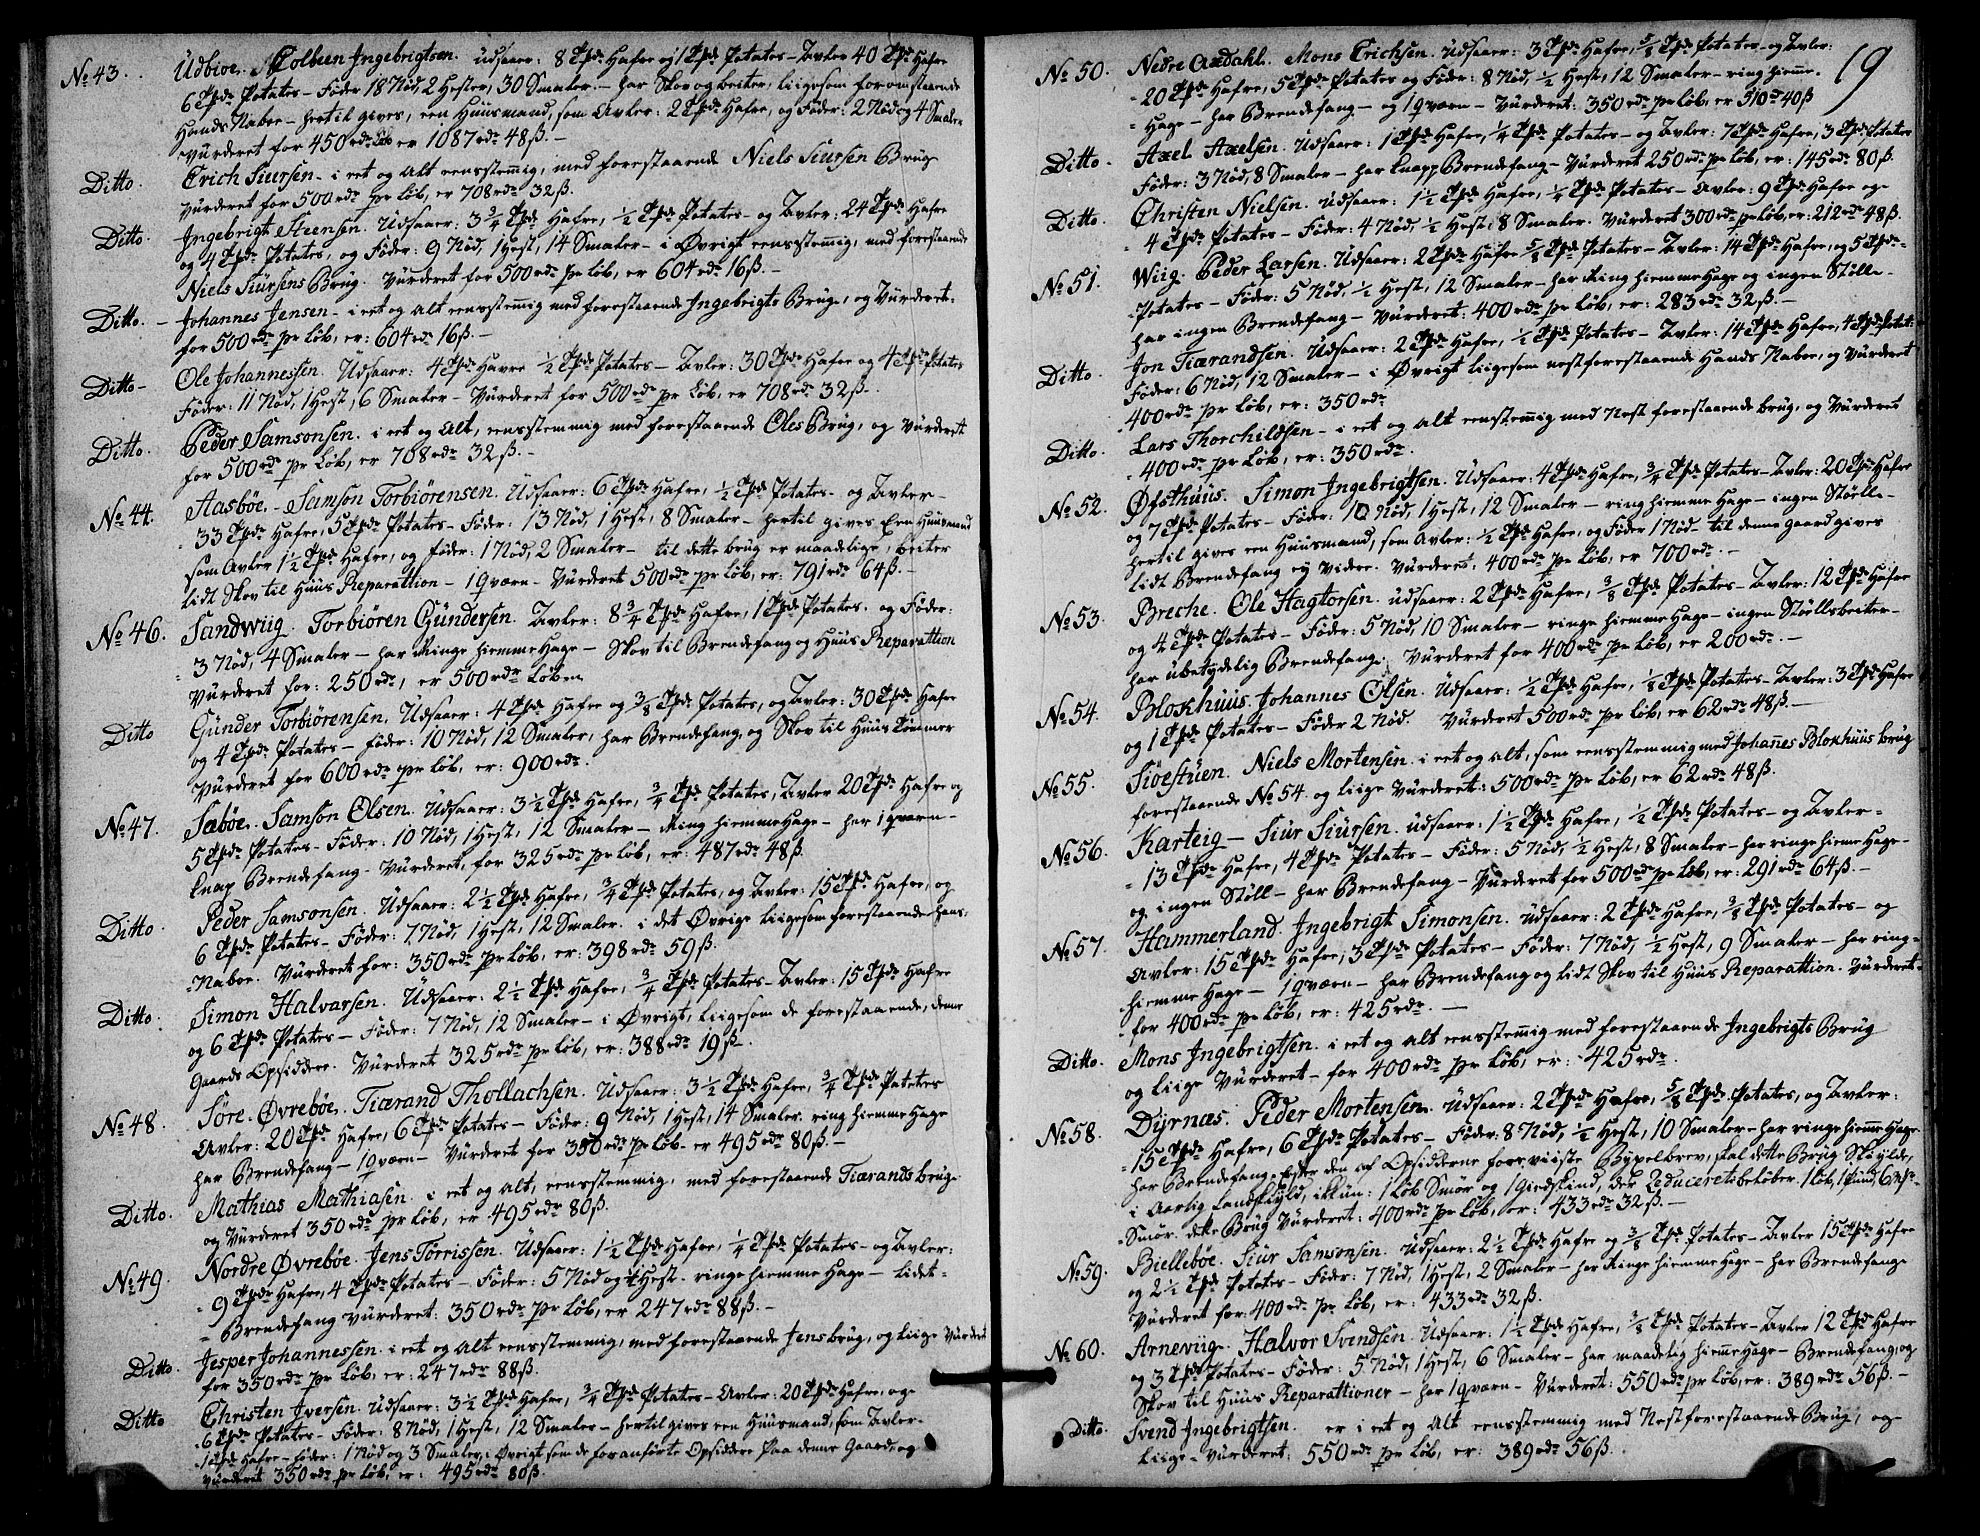 No 43. Udbioe. Colbeen Ingebrigtsen. udsaaer: 8 Tpde Hafre og 1 Tpde Potates - Avler 40 Tpde Hafre
6 Tpde Potates - Föder 18 Nöd, 2 Hester, 30 Smaler. - har Skov og beiter, liigesom foromstaaende
Hands Naboe - hertil gives, een Huusmand, som Avler: 2 Tpde Hafre, og Föder: 2 Nöd og 4 Smaler
Vurderet for 450 rdr pr Löb er 1087 rdr 48 ß. -
Ditto. Erich Siursen - i eet og Alt eensstemig, med forestaaende Niels Siursen Brug
Vurderet for 500 rdr pr Löb, er 708 rdr 32 ß.
Ditto. Ingebrigt Steensen. Udsaaer: 3 3/4 Tpde Hafre, 1/2 Tpde Potates - og Avler: 24 Tpde Hafre
og 4 Tpde Potates, og Föder: 9 Nöd, 1 Hest, 14 Smaler - i Øvrigt eensstemig, med forestaaende
Niels Siursens Brug. Vurderet for 500 rdr pr Löb, er 604 rdr 16 ß. -
Ditto. - Johannes Jensen - i eet og Alt eensstemig med forestaaende Ingebrigts Brug, og Vurderet:
for 500 rdr pr Löb, er: 604 rdr 16 ß. -
Ditto - Ole Johannessen. Udsaaer: 4 Tpde Havre 1/2 Tpde Potates - Avler: 30 Tpde Hafre og 4 Tpde Potates
Föder: 11 Nöd, 1 Hest, 6 Smaler - Vurderet for 500 rdr pr Löb, er 708 rdr 32 ß.
Ditto. Peder Samsonsen. i eet og Alt, eensstemmig med forestaaende Oles Brug, og Vurderet
for 500 rdr pr Löb, er 708 rdr 32 ß. -
No 44. Aasböe. - Samson Torbiörensen. Udsaaer: 6 Tpde Hafre, 1/2 Tpde Potates. og Avler -
33 Tpde Hafre, 5 Tpde Potates - Föder: 13 Nöd, 1 Hest, 8 Smaler - hertil gives Een Huusmand
som Avler 1 1/2 Tpde Hafre, og föder: 1 Nöd, 2 Smaler - til dette brug er maadelige, beiter
lidt Skov til Huus Reparattion - 1 qværn - Vurderet 500 rdr pr Löb, er: 791 rdr 64 ß. -
No 46. Sandwiig. Torbiören Gündersen. Avler: 8 3/4 Tpde Hafre, 1 Tpde Potates. og Föder:
3 Nöd, 4 Smaler - har Ringe hiemme Hage - Skov til Brendefang og Huus Reparattion
Vurderet for: 250 rdr, er 500 rdr Löben
Ditto Günder Torbiörensen. Udsaaer: 4 Tpde Hafre og 3/8 Tpde Potates, og Avler: 30 Tpde Hafre
og 4 Tpde Potates - föder: 10 Nöd, 12 Smaler, har Brendefang, og Skov til Huus Tömmer
Vurderet for 600 rdr pr Löb, er: 900 rdr.
No 47. Sæböe. Samson Olsen. Udsaaer: 3 1/2 Tpde Hafre, 3/4 Tpde Potates, Avler 20 Tpde Hafre og
5 Tpde Potates - Föder: 10 Nöd, 1 Hest, 12 Smaler - Ring hiemme Hage - har 1 qværn -
knap Brendefang - Vurderet, for 325 rdr pr Löb, er: 487 rdr 48 ß.
Ditto. Peder Samsonsen. Udsaaer: 2 1/2 Tpde Hafre, 3/4 Tpde Potates, og Avler: 15 Tpde Hafre, og
6 Tpde Potates - Föder: 7 Nöd, 1 Hest, 12 Smaler. i det Øvrige liigesom forestaaende hans
Naboe. Vurderet for: 350 rdr pr Löb, er: 398 rdr 59 ß.
Ditto. Simon Halvarsen. Udsaaer: 2 1/2 Tpde Hafre, 3/4 Tpde Potates - Avler: 15 Tpde Hafre
og 6 Tpde Potates - Föder: 7 Nöd, 12 Smaler - i Øvrigt, liigesom de forestaaende, denne
Gaards Opsiddere. Vurderet 325 rdr pr Löb, er: 388 rdr 19 ß.
No 48. Söre-Øvreböe. Tiærand Thollachsen. Udsaaer: 3 1/2 Tpde Hafre, 3/4 Tpde Potetes
Avler: 20 Tpde Hafre, 6 Tpde Potates - Föder: 9 Nöd, 1 Hest, 14 Smaler. ring hiemme Hage
har Brendefang - 1 qværn - Vurderet for 350 rdr pr Löb - er 495 rdr 80 ß. -
Ditto. Mathias Mathiasen. i eet og Alt, eensstemmig, med forestaaende Tiærands brug
og Vurderet 350 rdr pr Löb, er 495 rdr 80 ß.
No 49. Nordre Øvreböe. Jens Torrissen. Udsaaer: 1 1/2 Tpde Hafre, 1/4 Tpde Potates - og Avler:
9 Tpde Hafre, 4 Tpde Potates - Föder: 5 Nöd og 1 Hest - ringe hiemme Hage - lidet -
Brendefang vurderet: 350 rdr pr Löb, er 247 rdr 88 ß. -
Ditto. Jesper Johannessen. i eet og Alt eensstemmig, med forestaaende Jens brug, og liige Vurderet
for 350 rdr pr Löb, er: 247 rdr 88 ß.
Ditto Christen Iversen. Udsaaer: 3 1/2 Tpde Hafre, 3/4 Tpde Potates - Avler: 20 Tpde Hafre, og
6 Tpde Potates - Föder: 8 Nöd, 1 Hest, 12 Smaler - hertil gives een Huusmand, som Avler -
1 Tpde Hafre - föder: 1 Nöd og 3 Smaler, i Øvrigt som de foranförte Opsiddere paa denne Gaard, og
Vurderet 350 rdr pr Löb, er: 495 rdr 80 ß.
19
No 50. Nedre Axdahl. Mons Erichsen. Udsaaer: 3 Tpde Hafre, 5/8 Tpde Potates - og Avler:
20 Tpde Hafre, 5 Tpde Potates og Föder: 8 Nöd, 1/2 Hest, 12 Smaler - ring hieme.
Hage - har Brendefang - og 1 qværn - Vurderet: 350 rdr pr Löb, er 510 rdr 40 ß
Ditto. Axel Axelsen. Udsaaer: 1 Tpde Hafre, 1/4 Tpde Potates - og Avler: 7 Tpde Hafre, 3 Tpde Potates
Föder: 3 Nöd, 8 Smaler - har knapp Brendefang - Vurderet 250 rdr pr Löb, er: 145 rdr 80 ß.
Ditto. Christen Nielsen. Udsaaer: 1 1/2 Tpde Hafre, 1/4 Tpde Potates - Avler: 9 Tpde Hafre og
4 Tpde Potates - Föder: 4 Nöd, 1/2 Hest, 8 Smaler. Vurderet 300 rdr pr Löb, er: 212 rdr 48 ß.
No 51. Wiig. Peder Larsen. Udsaaer: 2 Tpde Hafre 5/8 Tpde Potates - Avler: 14 Tpde Hafre, og 5 Tpde
Potates - Föder: 5 Nöd, 1/2 Hest, 12 Smaler - har Ring hiemme Hage og ingen Stölle -
har ingen Brendefang - Vurderet: 400 rdr pr Löb, er: 283 rdr 32 ß. -
Ditto. Jon Tiærandsen. Udsaaer: 2 Tpde Hafre, 1/2 Tpde Potates - Avler: 14 Tpde Hafre, 4 Tpde Potat:
Föder: 6 Nöd, 12 Smaler - i Øvrigt liigesom nestforestaaende Hands Naboe, og Vurderet
400 rdr pr Löb, er: 350 rdr
Ditto. Lars Thorchildsen - i eet og Alt eenstemig med Nest forestaaende brug, og Vurderet
400 rdr pr Löb, er: 350 rdr.
No 52. Øfsthuus. Simon Ingebrigtsen. Udsaaer: 4 Tpde Hafre, 3/4 Tpde Potates - Avler: 20 Tpde Hafre
og 7 Tpde Potates - Föder: 10 Nöd, 1 Hest, 12 Smaler - ring hiemme Hage - ingen Stölle -
hertil gives een Huusmand, som Avler: 1/2 Tpde Hafre, og Föder 1 Nöd - til denne gaard gives
lidt Brendefang ej videre. Vurderet, 400 rdr pr Löb, er 700 rdr. -
No 53. Breche. Ole Hagtorsen. udsaaer: 2 Tpde Hafre, 3/8 Tpde Potates - Avler: 12 Tpde Hafre
og 4 Tpde Potates - Föder: 5 Nöd, 10 Smaler - ringe hiemme Hage - ingen Stöllsbeiter -
har ubetydelig Brendefang. Vurderet for 400 rdr pr Löb, er 200 rdr. -
No 54. Blokhuus. Johannes Olsen. Udsaaer: 1/2 Tpde Hafre, 1/8 Tpde Potates - Avler: 3 Tpde Hafre
og 1 Tpde Potates - Föder 2 Nöd. Vurderet 500 rdr pr Löb, er 62 rdr 48 ß. -
No 55. Siöestuen. Niels Mortensen. i eet og alt, som eensstemmig med Johanes Blokhuus brug
forestaaende No 54. og liige Vurderet: 500 rdr pr Löb, er 62 rdr 48 ß.
No 56. Karteig - Siur Siursen. udsaaer: 1 1/2 Tpde Hafre, 1/2 Tpde Potates - og Avler -
13 Tpde Hafre, 4 Tpde Potates - Föder: 5 Nöd, 1/2 Hest, 8 Smaler - har ringe hieme Hage -
og ingen Stöll - har Brendefang - Vurderet for 500 rdr pr Löb, er: 291 rdr 64 ß. -
No 57. Hammerland. Ingebrigt Simonsen. udsaaer: 2 Tpde Hafre, 3/8 Tpde Potates - og
Avler: 15 Tpde Hafre, 3 Tpde Potates - Föder: 7 Nöd, 1/2 Hest, 9 Smaler - har ring -
hiemme Hage - 1 qværn - har Brendefang og lidt Skov til Huus Reparattion. Vurderet -
for 400 rdr pr Löb, er: 425 rdr. -
Ditto. Mons Ingebrigtsen. i eet og alt eensstemig med forestaaende Ingebrigts Brug
og liige Vurderet - for 400 rdr pr Löb, er: 425 rdr.
No 58. Dyrnæs. Peder Mortensen. Udsaaer: 2 Tpde Hafre, 5/8 Tpde Potates, og Avler:
15 Tpde Hafre, 6 Tpde Potates - Föder: 8 Nöd, 1/2 Hest, 10 Smaler - har ringe hieme Hage
har Brendefang. Efter den af Opsidderne foreviiste Bygselbrev, skal dette Brug Skÿlde,
i Aarlig Landskyld, ikkun: 1 Löb Smör og 1 Giedskind, der Reduceret beløber 1 Löb, 1 Pund, 6
Smör. dette Brug Vurderet: 400 rdr pr Löb, er: 433 rdr 32 ß. -
No 59. Bielleböe. Siur Samsonsen. Udsaaer: 2 1/2 Tpde Hafre og 3/8 Tpde Potates - Avler 15 Tpde Hafre
og 2 1/2 Tpde Potates - Föder: 7 Nöd, 1 Hest, 2 Smaler - har Ringe hiemme Hage - har Brendefang
Vurderet for: 400 rdr pr Löb, er: 433 rdr 32 ß.
No 60. Arneviig. Halvor Svendsen. Udsaaer: 1 1/2 Tpde Hafre, 3/8 Tpde Potates - Avler 12 Tpde Hafre
og 3 Tpde Potates - Föder: 5 Nöd, 1 Hest, 6 Smaler - har maadelig hieme Hage - Brendefang, og
Skov til Huus Reparattioner - har 1 qværn - Vurderet: 550 rdr pr Löb, er: 389 rdr 56 ß. -
Ditto. Svend Ingebrigtsen. er i eet og Alt eensstemmig med Nestforestaaende Brug, og
liige - Vurderet: 550 rdr pr Löb, er: 389 rdr 56 ß.